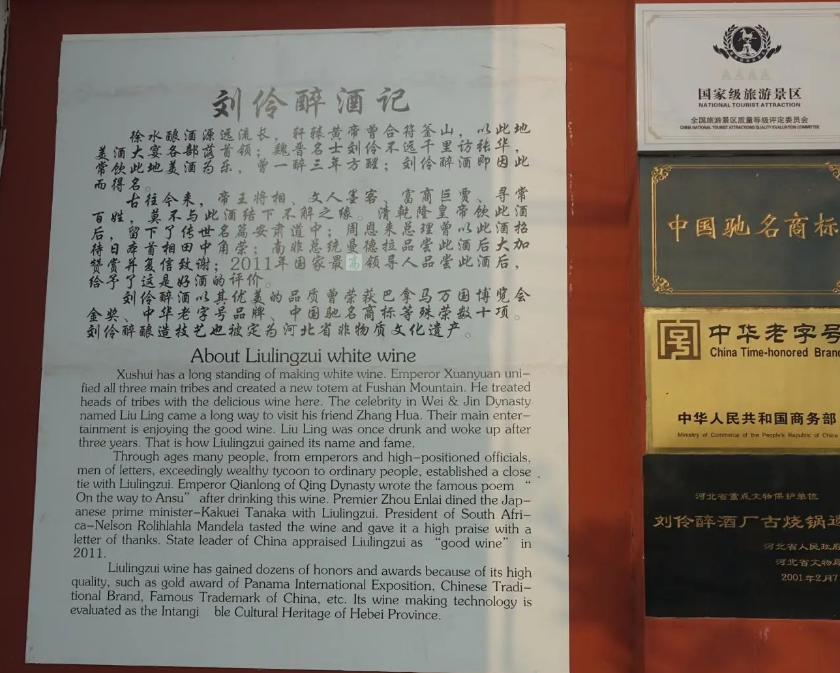 刘伶醉酒记
徐水酿酒源远流长，轩辕黄帝曾合符釜山，以此地
美酒大宴各部落首领；魏晋名士刘伶不远千里访张华，
常饮此地美酒为乐，曾一醉三年方醒；刘伶醉酒即因此
而得名。
古往今来，帝王将相、文人墨客、富商巨贾、寻常
百姓，莫不与此酒结下不解之缘。清乾隆皇帝饮此酒
后，留下了传世名篇安肃道中；周恩来总理曾以此酒招
待日本首相田中角荣；南非总统曼德拉品尝此酒后大加
赞赏并复信致谢；2011年国家最高领导人品尝此酒后，
给予了这是好酒的评价。
刘伶醉酒以其优美的品质曾荣获巴拿马万国博览会
金奖、中华老字号品牌、中国驰名商标等殊荣数十项。
刘伶醉酿造技艺也被定为河北省非物质文化遗产。
About Liulingzui white wine
Xushui has a long standing of making white wine. Emperor Xuanyuan uni-
fied all three main tribes and created a new totem at Fushan Mountain. He treated
heads of tribes with the delicious wine here. The celebrity in Wei & Jin Dynasty
named Liu Ling came a long way to visit his friend Zhang Hua. Their main enter-
tainment is enjoying the good wine. Liu Ling was once drunk and woke up after
three years. That is how Liulingzui gained its name and fame.
Through ages many people, from emperors and high-positioned officials,
men of letters, exceedingly wealthy tycoon to ordinary people, established a close
tie with Liulingzui. Emperor Qianlong of Qing Dynasty wrote the famous poem “
On the way to Ansu” after drinking this wine. Premier Zhou Enlai dined the Jap-
anese prime minister-Kakuei Tanaka with Liulingzui. President of South Afri-
ca-Nelson Rolihlahla Mandela tasted the wine and gave it a high praise with a
letter of thanks. State leader of China appraised Liulingzui as “good wine” in
2011.
Liulingzui wine has gained dozens of honors and awards because of its high
quality, such as gold award of Panama International Exposition, Chinese Tradi-
tional Brand, Famous Trademark of China, etc. Its wine making technology is
evaluated as the Intangi ble Cultural Heritage of Hebei Province.
AAAA
国家级旅游景区
NATIONAL TOURIST ATTRACTION
全国旅游景区质量等级评定委员会
CHINA NATIONAL TOURIST ATTRACTIONS QUALITY EVALUATION COMMITTEE
中国驰名商标
中华老字号
China Time-honored Brand
中华人民共和国商务部
Ministry of Commerce of the People's Republic of China
河北省重点文物保护单位
刘伶醉酒厂古烧锅遗
河北省人民政府
河北省文物局
2001年2月7